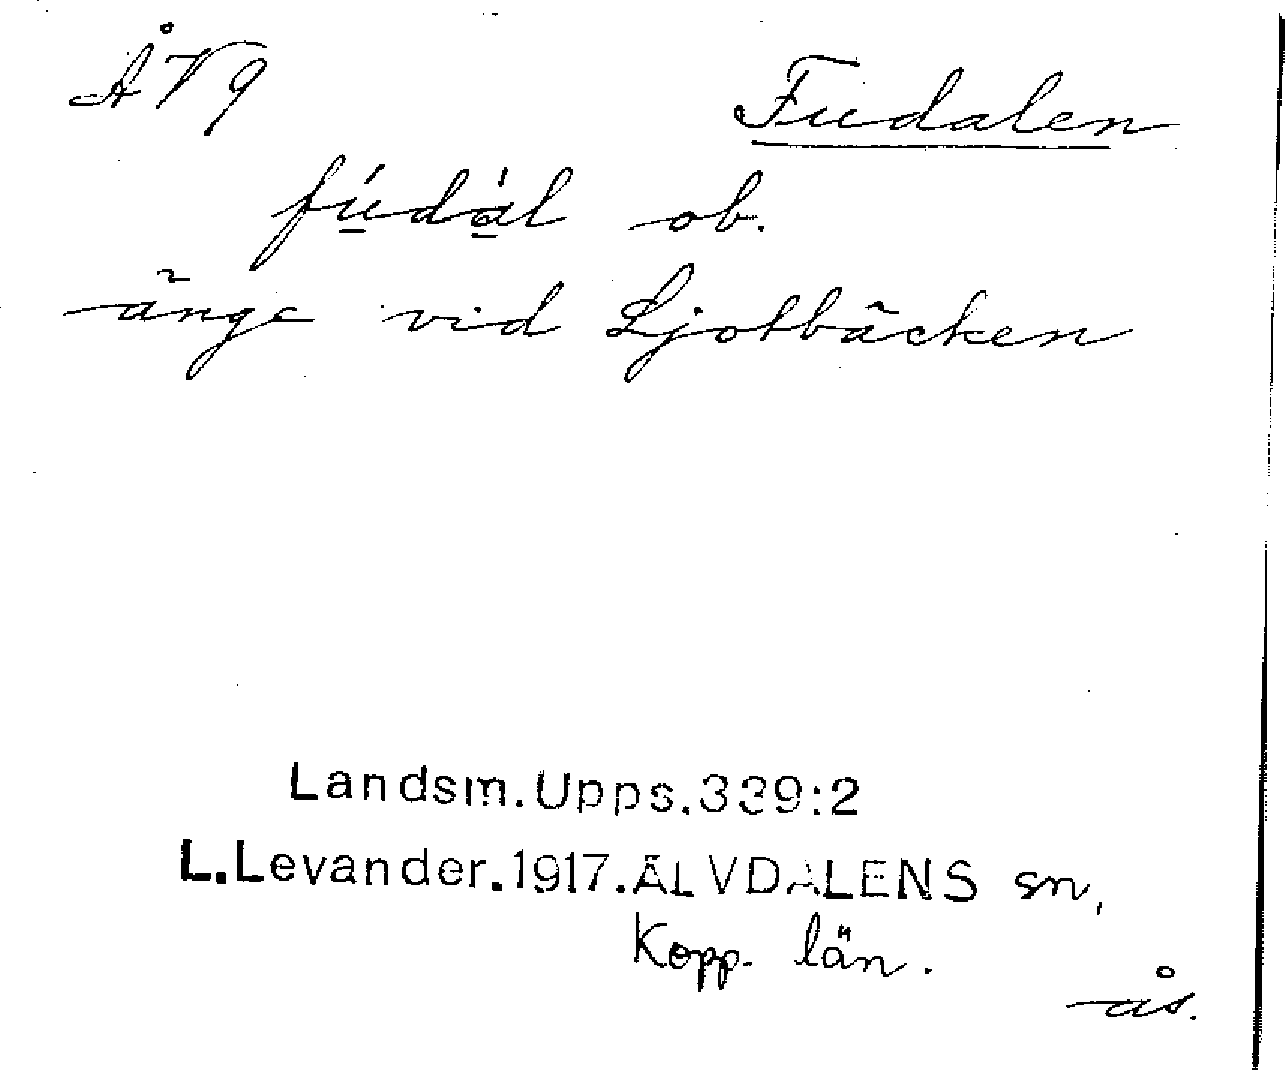 ÅV9 Fudalen
fúdàl ob.
änge vid Ljotbäcken
Landsm.Upps.339:2
L.Levander.1917.ÄLVDALENS sn,
Kopp. län.
ås.